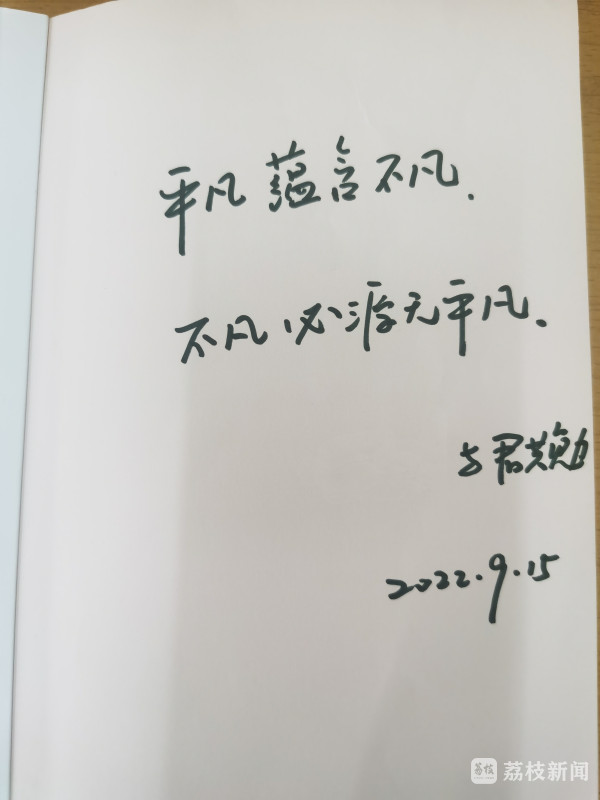 平凡蕴含不凡.
不凡必无平凡.
与君共勉
2022.9.15
荔枝 荔枝新闻